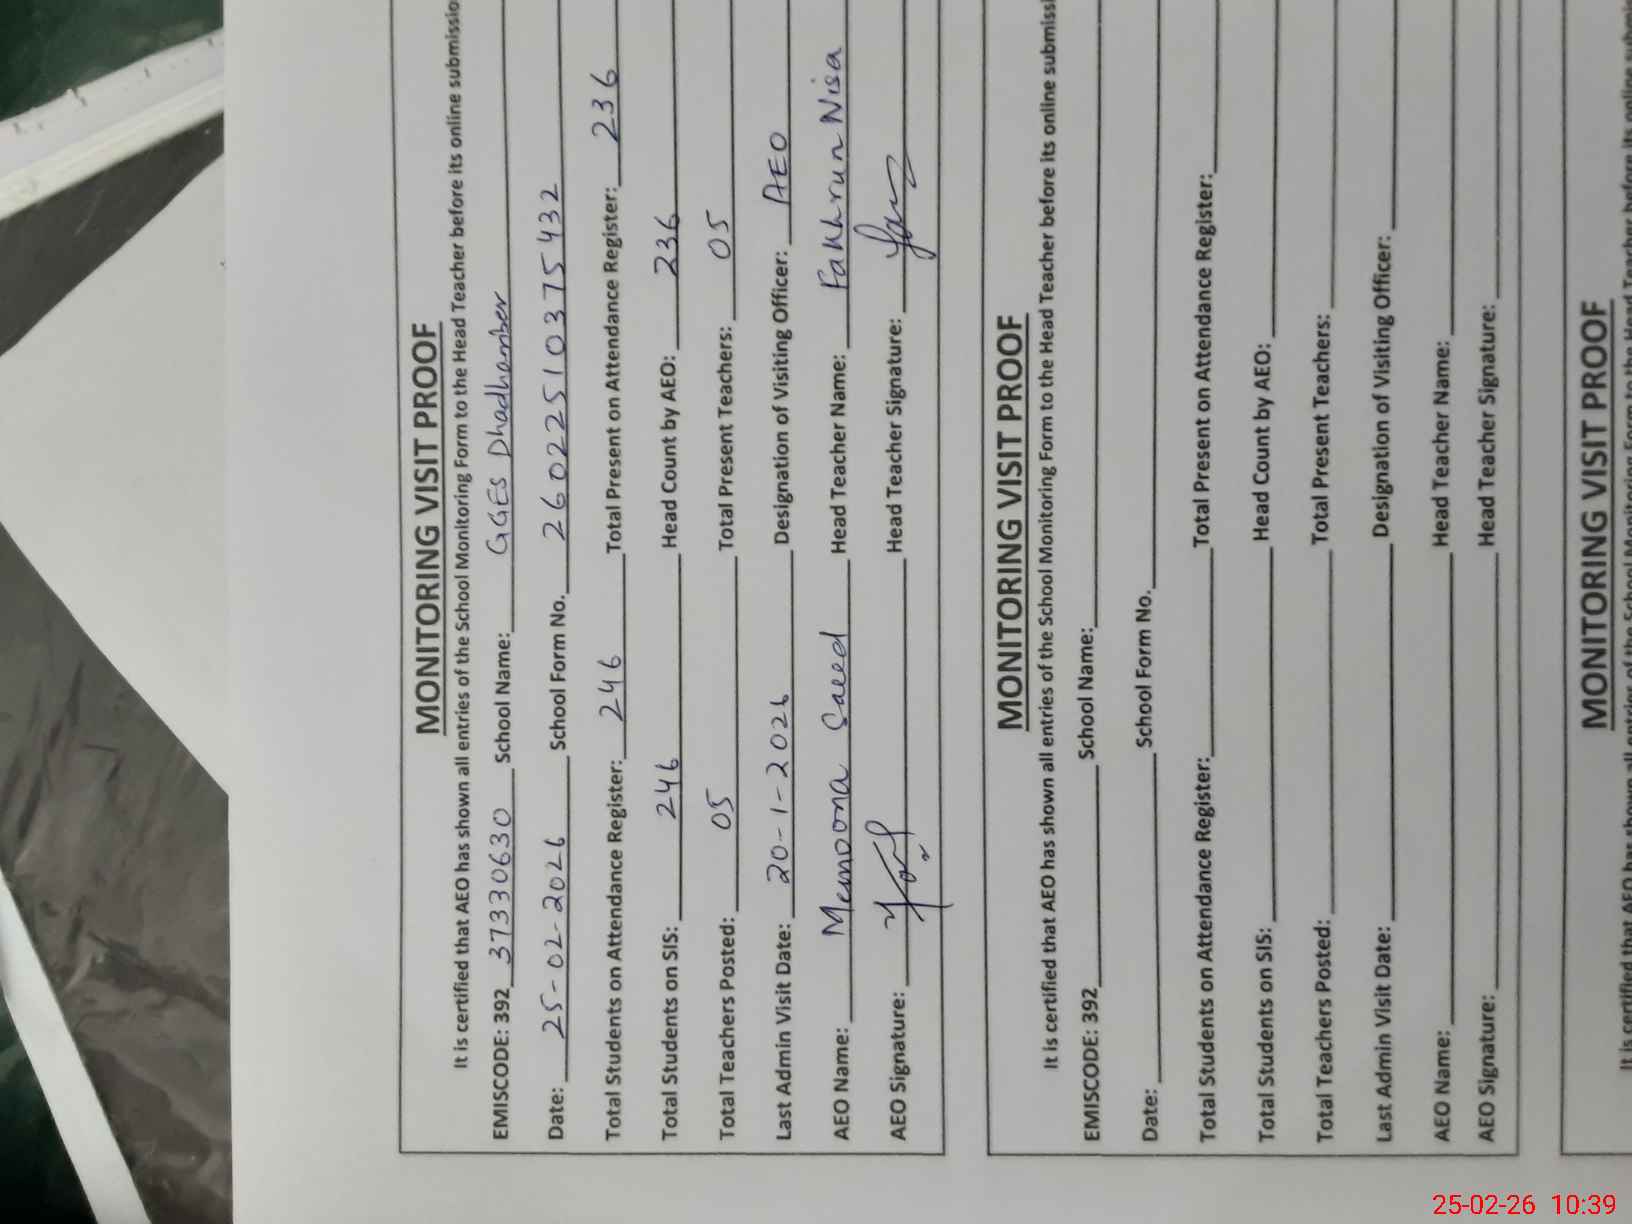 MONITORING VISIT PROOF
It is certified that AEO has shown all entries of the School Monitoring Form to the Head Teacher before its online
EMISCODE: 392 37330630 School Name: GGES Dhadhamber
Date: 25-02-2026 School Form No. 26022510375432
Total Students on Attendance Register: 246 Total Present on Attendance Register: 236
Total Students on SIS: 246 Head Count by AEO: 236
Total Teachers Posted: 05 Total Present Teachers: 05
Last Admin Visit Date: 20-1-2026 Designation of Visiting Officer: AEO
AEO Name: Memoona Saeed Head Teacher Name: Fakhrun Nisa
AEO Signature: Head Teacher Signature:
MONITORING VISIT PROOF
It is certified that AEO has shown all entries of the School Monitoring Form to the Head Teacher before its online
EMISCODE: 392 School Name:
Date: School Form No.
Total Students on Attendance Register: Total Present on Attendance Register:
Total Students on SIS: Head Count by AEO:
Total Teachers Posted: Total Present Teachers:
Last Admin Visit Date: Designation of Visiting Officer:
AEO Name: Head Teacher Name:
AEO Signature: Head Teacher Signature:
MONITORING VISIT PROOF
It is certified that AEO has shown all entries of the School Monitoring Form to the Head Teacher before its online
25-02-26 10:39